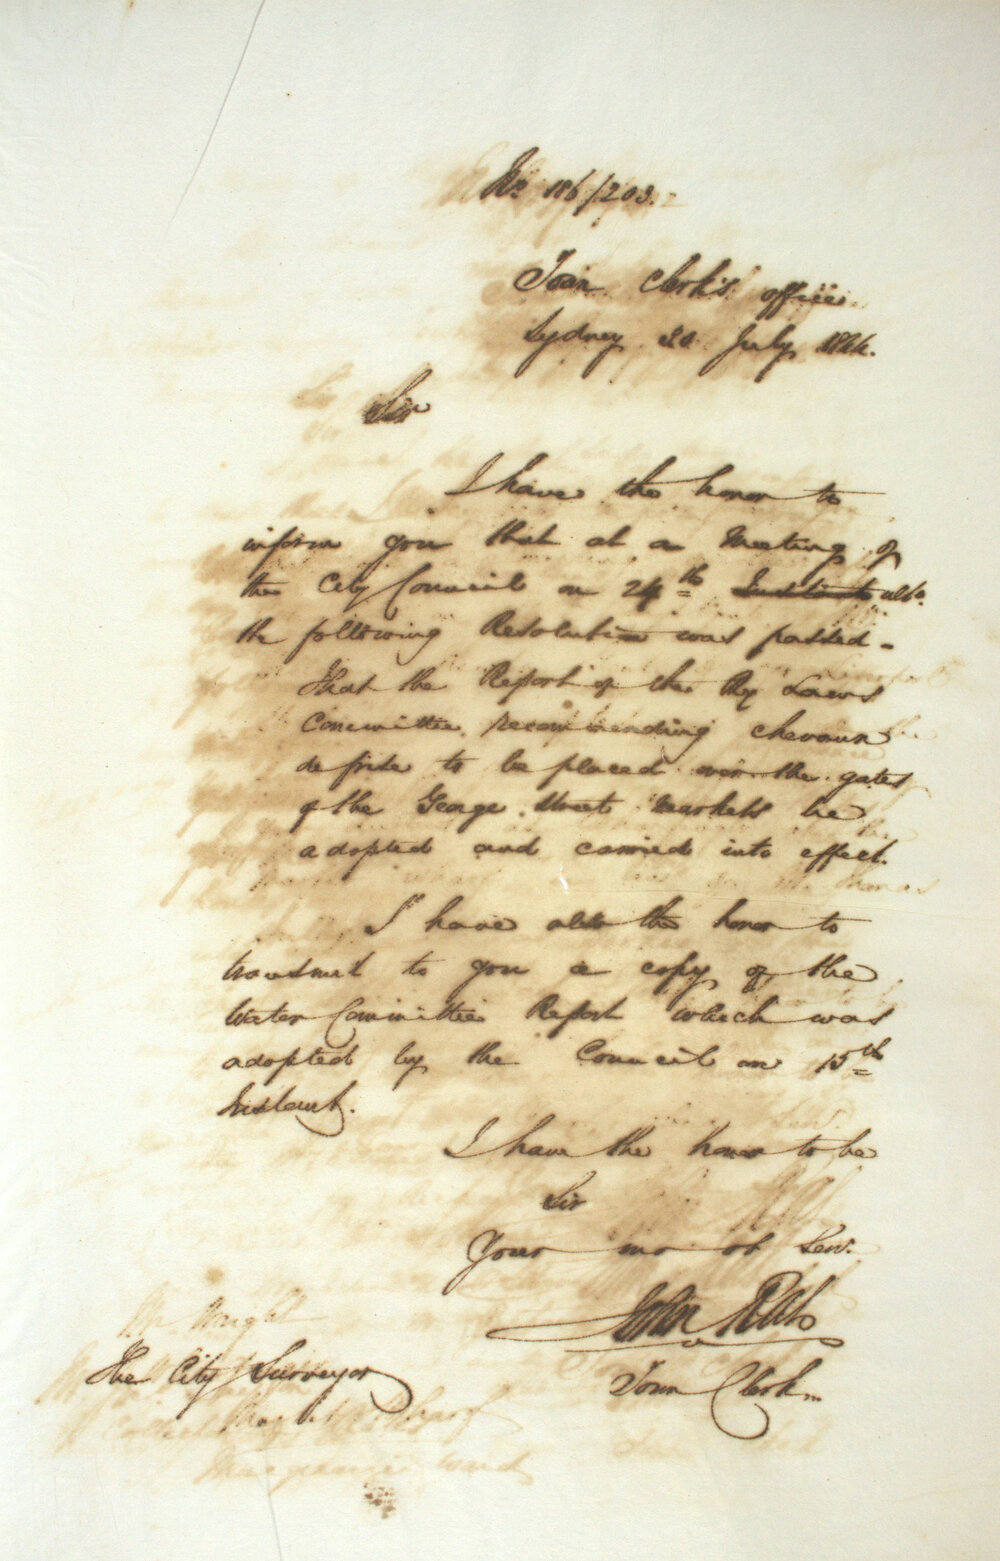 No 186/203.
Town Clerk's office
Sydney 30 July 1844.
Sir
I have the honor to
inform you that at a Meeting of
the City Council on 24th Instant ulto.
the following Resolution was passed -
That the Report of the By Laws
Committee recommending chevaux
de frise to be placed over the gates
of the George Street Markets be
adopted and carried into effect.
I have also the honor to
transmit to you a copy of the
Water Committee Report which was
adopted by the Council on 15th
Instant.
I have the honor to be
Sir
Your mo ob Serv.
John
Town Clerk
The City Surveyor